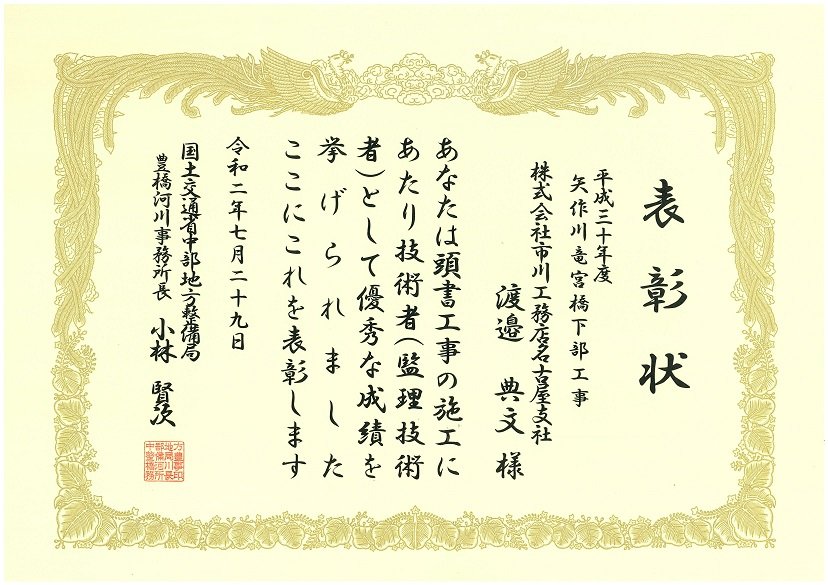 表彰状
平成三十年度
矢作川竜宮橋下部工事
株式会社市川工務店名古屋支社
渡邉 典文 様
あなたは頭書工事の施工に
あたり技術者(監理技術
者)として優秀な成績を
挙げられました
ここにこれを表彰します
令和二年七月二十九日
国土交通省中部地方整備局
豊橋河川事務所長 小林 賢次